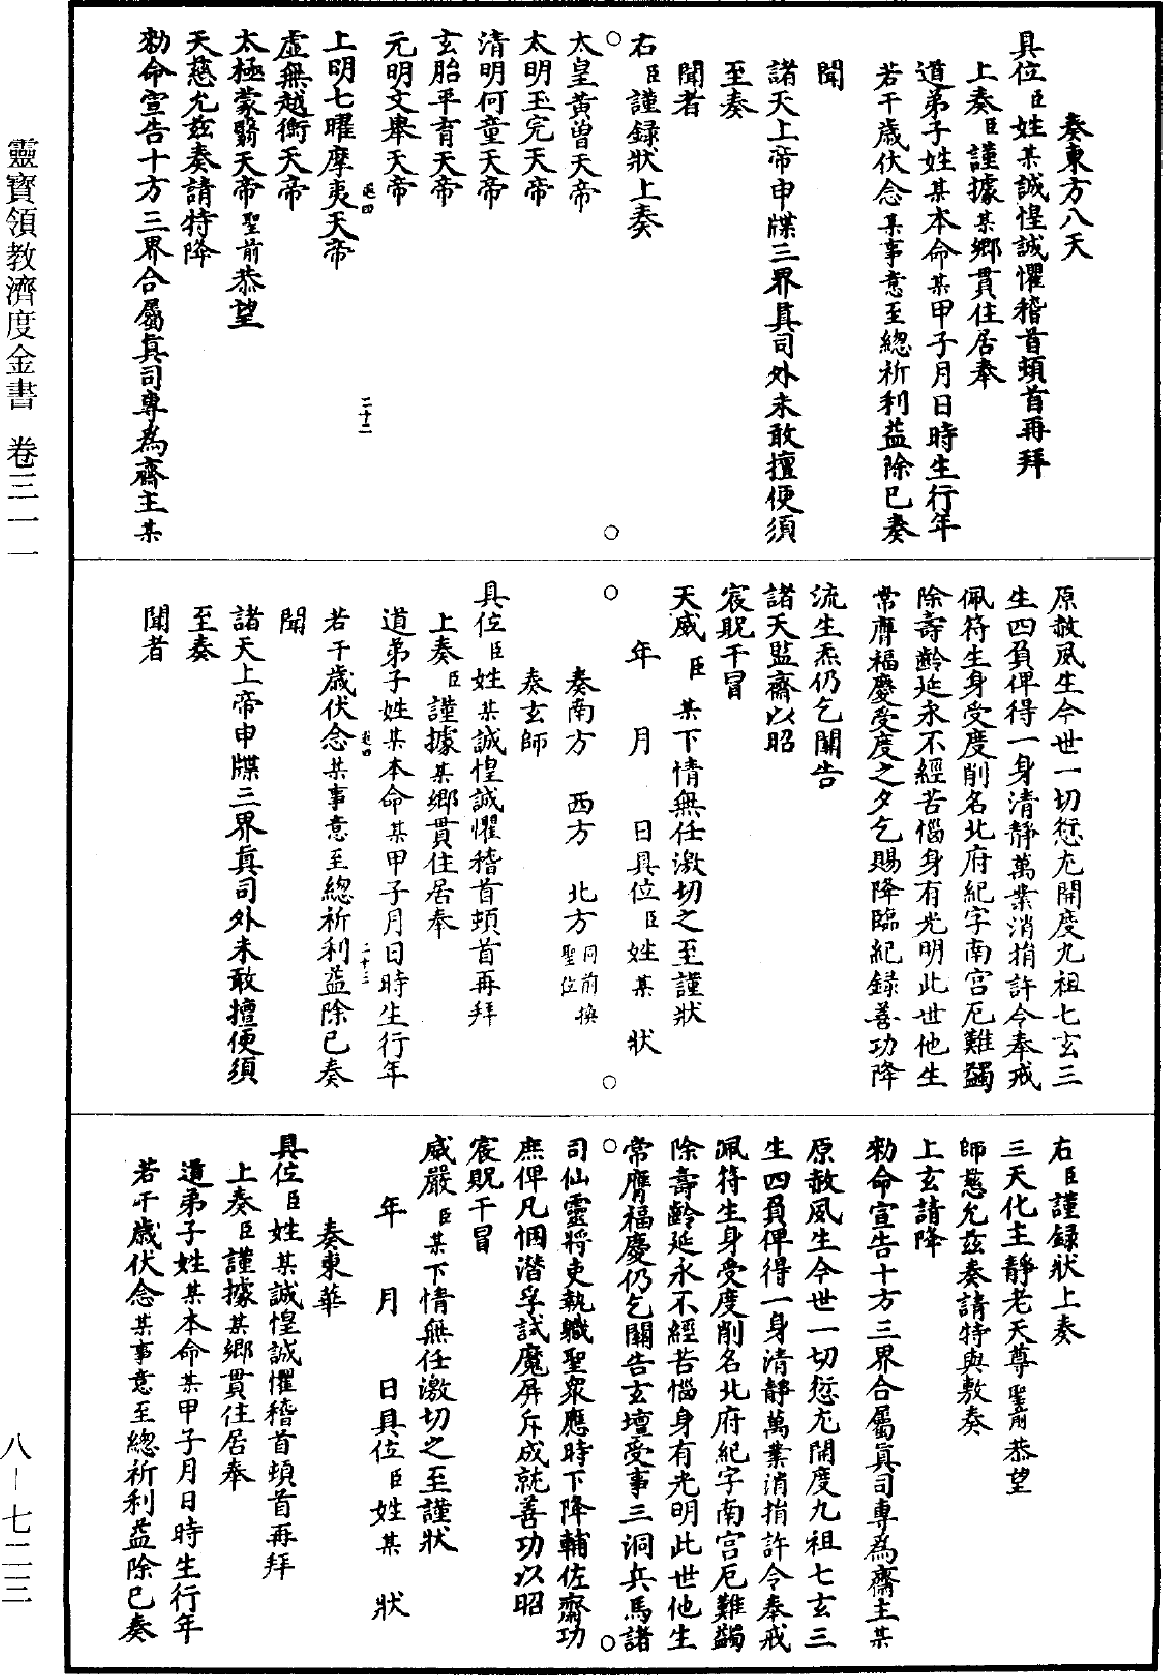 奏東方八天
具位臣姓某誠惶誠懼稽首頓首再拜
上奏臣謹據某鄉貫住居奉
道弟子姓某本命某甲子月日時生行年
若干歲伏念某事意至總祈利益除已奏
聞
諸天上帝申牒三界真司外未敢擅便須
至奏
聞者
右臣謹錄狀上奏
太皇黃曾天帝
太明玉完天帝
清明何童天帝
玄胎平育天帝
元明文舉天帝
二十二
上明七曜摩夷天帝
虛無越衡天帝
太極蒙翳天帝聖前恭望
天慈允茲奏請特降
勑命宣告十方三界合屬真司專為齋主某
原赦夙生今世一切愆尤開度九祖七玄三
生四負俾得一身清靜萬業消捐許令奉戒
佩符生身受度削名北府紀字南宮厄難蠲
除壽齡延永不經苦惱身有光明此世他生
常膺福慶受度之夕乞賜降臨紀錄善功降
流生炁仍乞關告
諸天監齋以昭
宸貺干冒
天威臣某下情無任激切之至謹狀
年 月 日具位臣姓某 狀
奏南方 西方 北方同前換聖位
奏玄師
具位臣姓某誠惶誠懼稽首頓首再拜
上奏臣謹據某鄉貫住居奉
道弟子姓某本命某甲子月日時生行年
二十三
若干歲伏念某事意至總祈利益除已奏
聞
諸天上帝申牒三界真司外未敢擅便須
至奏
聞者
右臣謹錄狀上奏
三天化主靜老天尊聖前恭望
師慈允茲奏請特與敷奏
上玄請降
勑命宣告十方三界合屬真司專為齋主某
原赦夙生今世一切愆尤開度九祖七玄三
生四負俾得一身清靜萬業消捐許令奉戒
佩符生身受度削名北府紀字南宮厄難蠲
除壽齡延永不經苦惱身有光明此世他生
常膺福慶仍乞關告玄壇受事三洞兵馬諸
司仙靈將吏執職聖眾應時下降輔佐齋功
庶俾凡悃潛孚試魔屏斥成就善功以昭
宸貺干冒
威嚴臣某下情無任激切之至謹狀
年 月 日具位臣姓某 狀
奏東華
具位臣姓某誠惶誠懼稽首頓首再拜
上奏臣謹據某鄉貫住居奉
道弟子姓某本命某甲子月日時生行年
若干歲伏念某事意至總祈利益除已奏
靈寶領教濟度金書 卷三一一
八—七二三